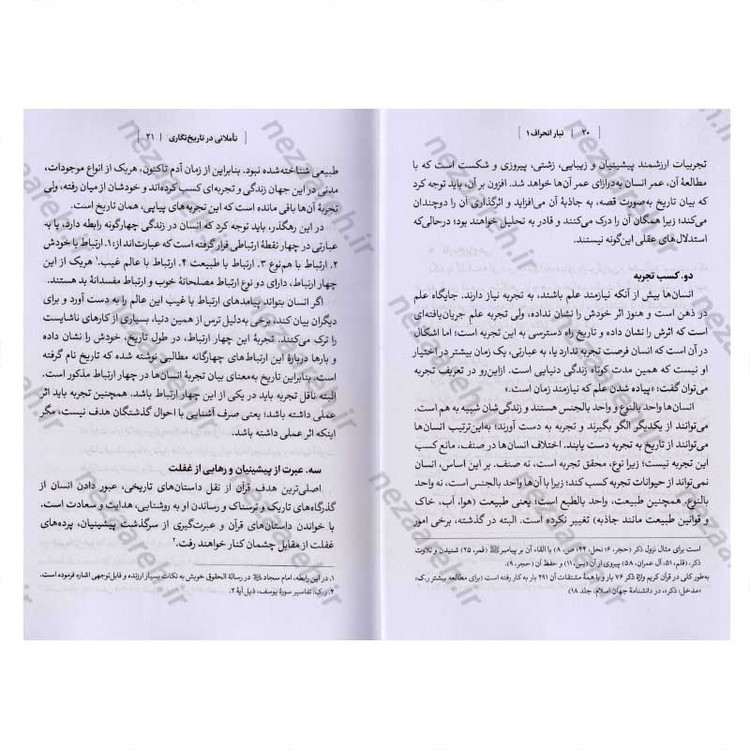 ۲۰ | تبار انحراف ۱
تجربیات ارزشمند پیشینیان و زیبایی، زشتی، پیروزی و شکست است که با
مطالعهٔ آن، عمر انسان به‌درازای عمر آن‌ها خواهد شد. افزون بر آن، باید توجه کرد
که بیان تاریخ به‌صورت قصه، به جاذبهٔ آن می‌افزاید و اثرگذاری آن را دوچندان
می‌کند؛ زیرا همگان آن را درک می‌کنند و قادر به تحلیل خواهند بود؛ درحالی‌که
استدلال‌های عقلی این‌گونه نیستند.
دو. کسب تجربه
انسان‌ها بیش از آنکه نیازمند علم باشند، به تجربه نیاز دارند. جایگاه علم
در ذهن است و هنوز اثر خودش را نشان نداده، ولی تجربه علم جریان‌یافته‌ای
است که اثرش را نشان داده و تاریخ راه دسترسی به این تجربه است؛ اما اشکال
در آن است که انسان فرصت تجربه ندارد یا، به عبارتی، یک زمان بیشتر در اختیار
او نیست که همین مدت کوتاه زندگی دنیایی است. ازاین‌رو در تعریف تجربه
می‌توان گفت: «پیاده شدن علم که نیازمند زمان است.»
انسان‌ها واحد بالنوع و واحد بالجنس هستند و زندگی‌شان شبیه به هم است.
می‌توانند از یکدیگر الگو بگیرند و تجربه به دست آورند؛ به‌این‌ترتیب انسان‌ها
می‌توانند از تاریخ به تجربه دست یابند. اختلاف انسان‌ها در صنف، مانع کسب
این تجربه نیست؛ زیرا نوع، محقق تجربه است، نه صنف. بر این اساس، انسان
نمی‌تواند از حیوانات تجربه کسب کند؛ زیرا با آن‌ها واحد بالجنس است، نه واحد
بالنوع. همچنین طبیعت، واحد بالطبع است؛ یعنی طبیعت (هوا، آب، خاک
و قوانین طبیعت مانند جاذبه) تغییر نکرده است. البته در گذشته، برخی امور
است برای مثال نزول ذکر (حجر، ۶؛ نحل، ۴۴؛ ص، ۸) با القاء آن بر پیامبر ﷺ (قمر، ۲۵) شنیدن و تلاوت
ذکر: (قلم، ۵۱؛ آل عمران، ۵۸) پیروی از آن (یس، ۱۱) و حفظ آن (حجر، ۹).
به‌طور کلی در قرآن کریم واژهٔ ذکر ۷۶ بار و با همهٔ مشتقات آن ۲۹۱ بار به کار رفته است (برای مطالعه بیشتر ر.ک:
«مدخل ذکر»، در دانشنامهٔ جهان اسلام، جلد ۱۸)
تأملاتی در تاریخ‌نگاری | ۲۱
طبیعی شناخته‌شده نبود. بنابراین از زمان آدم تاکنون، هریک از انواع موجودات،
مدتی در این جهان زندگی و تجربه‌ای کسب کرده‌اند و خودشان از میان رفته، ولی
تجربهٔ آن‌ها باقی مانده است که این تجربه‌های پیاپی، همان تاریخ است.
در این رهگذر، باید توجه کرد که انسان در زندگی چهارگونه رابطه دارد، یا به
عبارتی در چهار نقطهٔ ارتباطی قرار گرفته است که عبارت‌اند از: ۱. ارتباط با خودش
۲. ارتباط با هم‌نوع ۳. ارتباط با طبیعت ۴. ارتباط با عالم غیب.۱ هریک از این
چهار ارتباط، دارای دو نوع ارتباط مصلحانهٔ خوب و ارتباط مفسدانهٔ بد هستند.
اگر انسان بتواند پیامدهای ارتباط با غیب این عالم را به دست آورد و برای
دیگران بیان کند، برخی به‌دلیل ترس از همین دنیا، بسیاری از کارهای ناشایست
را ترک می‌کنند. تجربهٔ این چهار ارتباط، در طول تاریخ، خودش را نشان داده
و بارها دربارهٔ این ارتباط‌های چهارگانه مطالبی نوشته شده که تاریخ نام گرفته
است. بنابراین تاریخ به‌معنای بیان تجربهٔ انسان‌ها در چهار ارتباط مذکور است.
البته ناقل تجربه باید در یکی از این چهار ارتباط باشد. همچنین تجربه باید اثر
عملی داشته باشد؛ یعنی صرف آشنایی با احوال گذشتگان هدف نیست، مگر
اینکه اثر عملی داشته باشد.
سه. عبرت از پیشینیان و رهایی از غفلت
اصلی‌ترین هدف قرآن از نقل داستان‌های تاریخی، عبور دادن انسان از
گذرگاه‌های تاریک و ترسناک و رساندن او به روشنایی، هدایت و سعادت است.
با خواندن داستان‌های قرآن و عبرت‌گیری از سرگذشت پیشینیان، پرده‌های
غفلت از مقابل چشمان کنار خواهند رفت.۲
۱. در این رابطه، امام سجاد در رسالة الحقوق خویش به نکات بسیار ارزنده و قابل‌توجهی اشاره فرموده است.
۲. ر.ک: تفاسیر سورهٔ یوسف، ذیل آیهٔ ۲.
nezzareh.ir